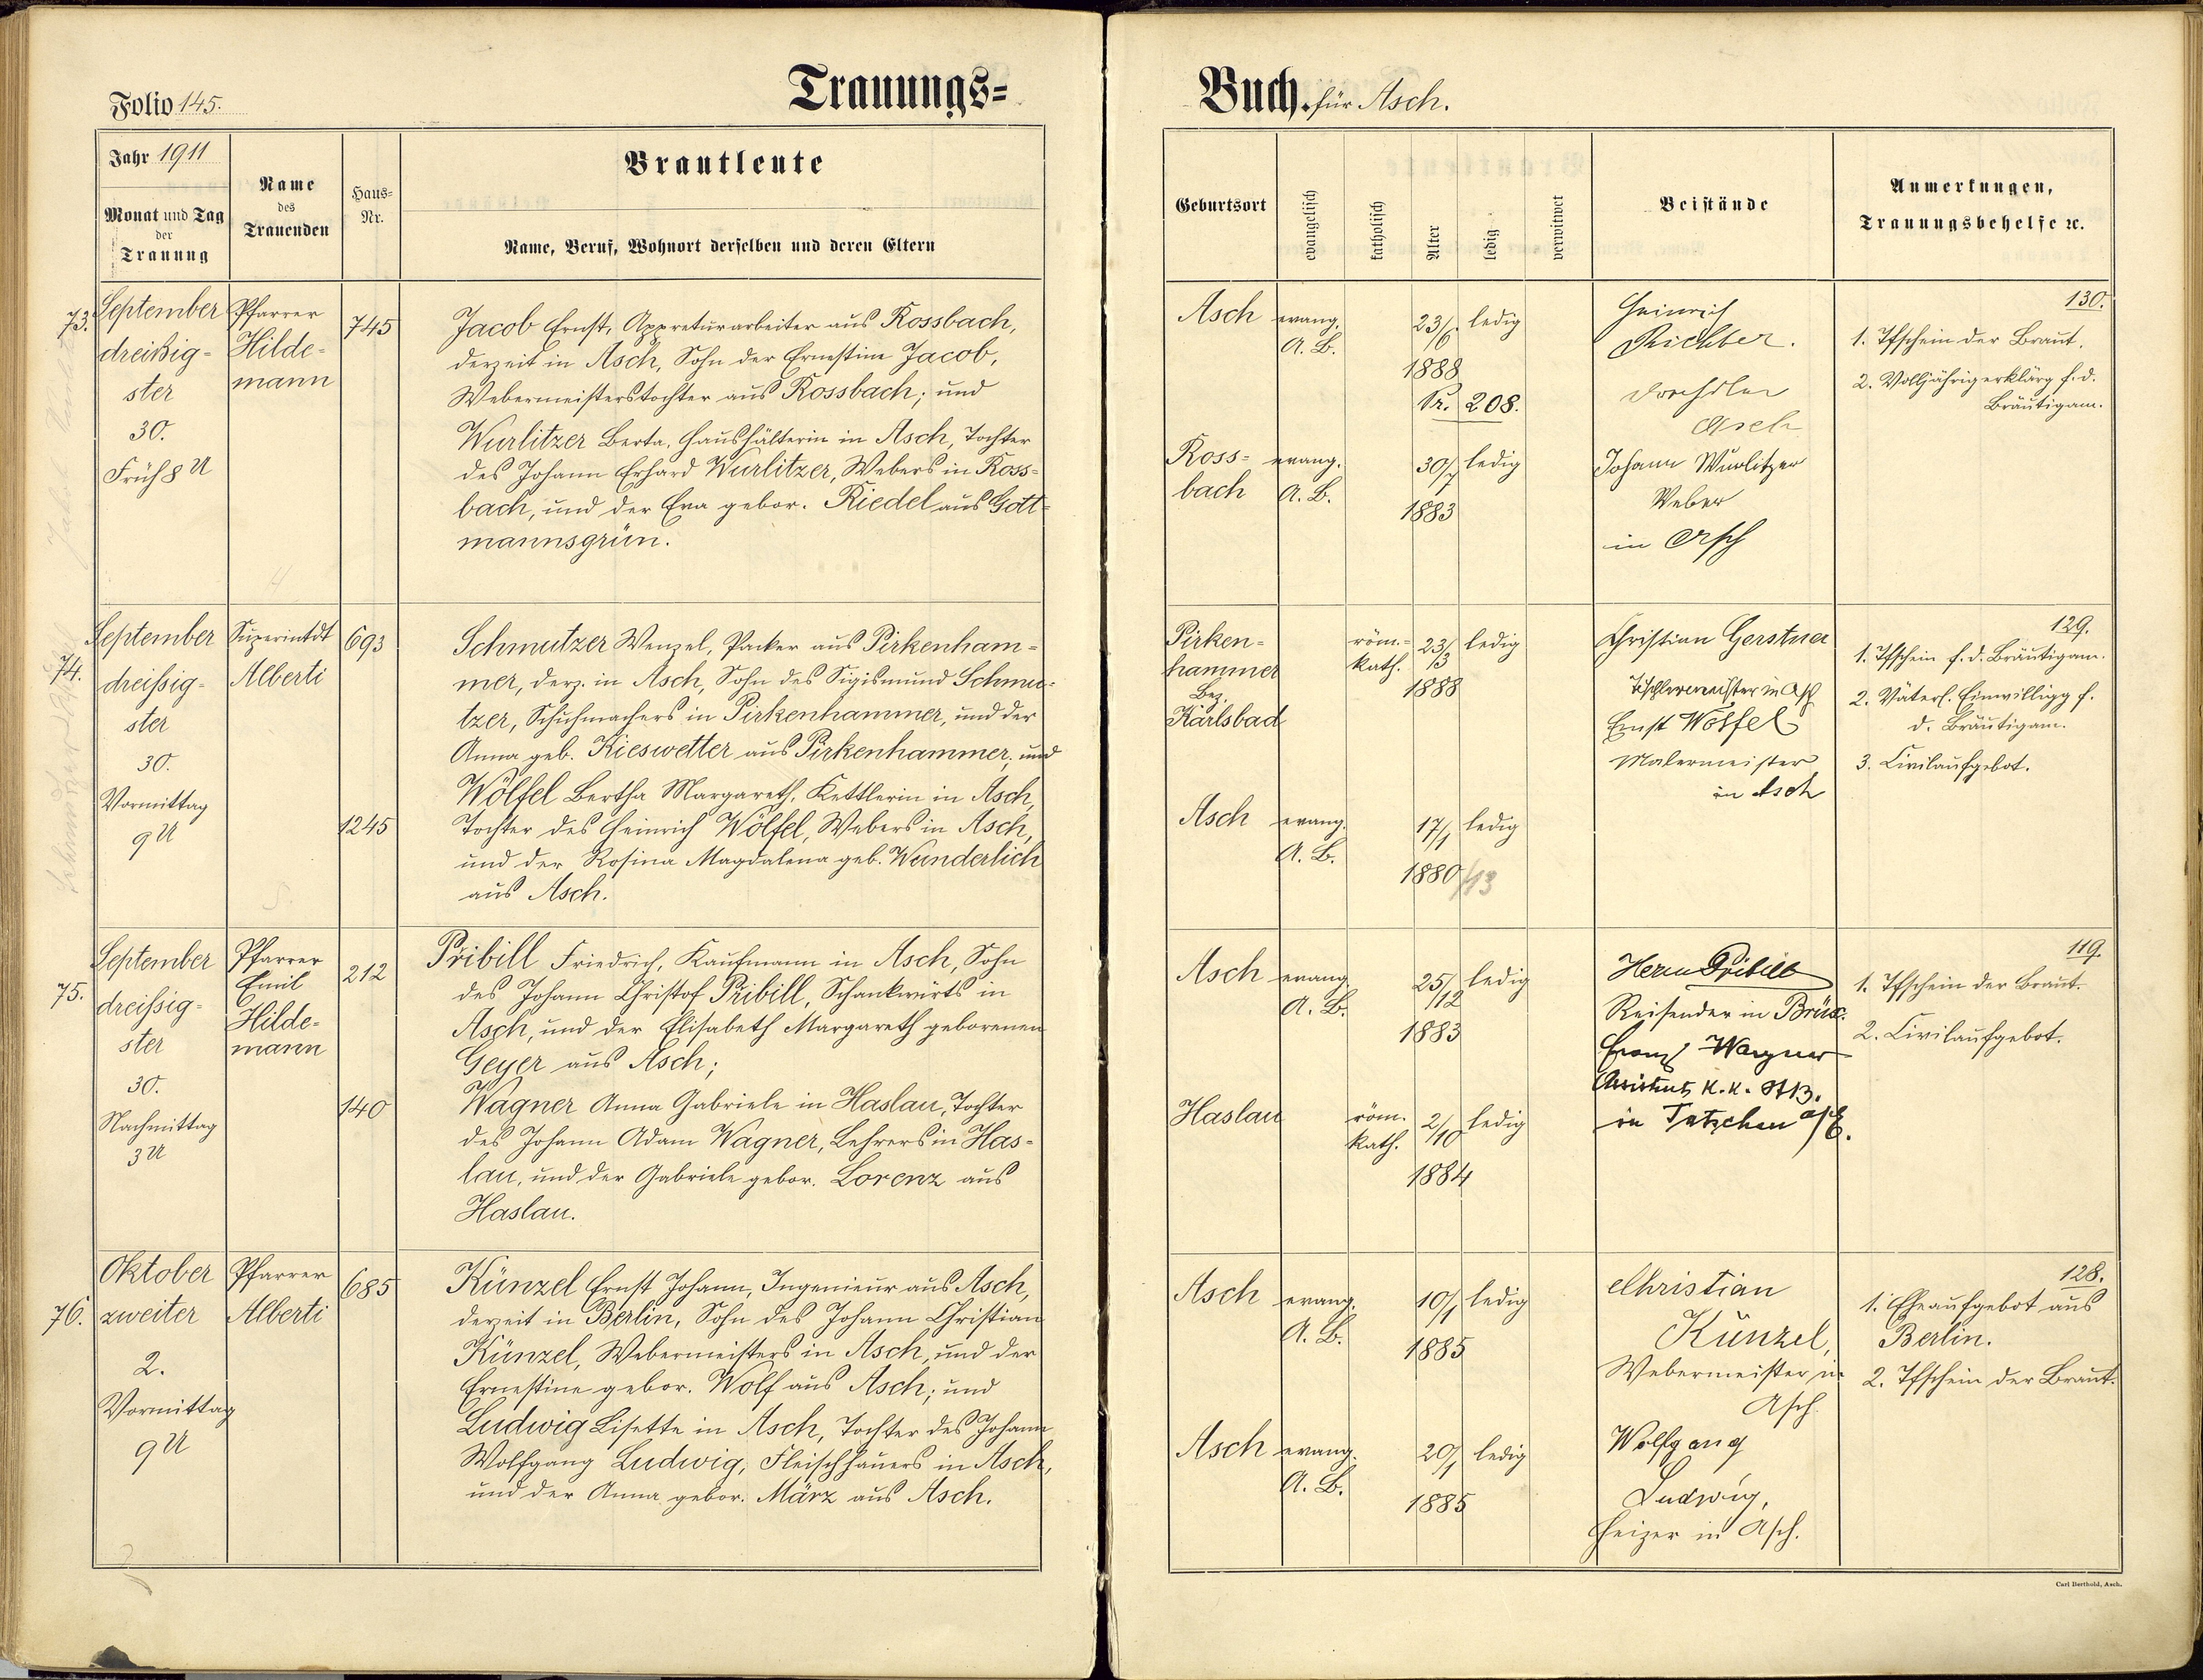 Folio 145.
Trauungs=
Jahr 1911
Monat und Tag
der
Trauung
Name
des
Trauenden
Haus=
Nr.
Brautleute
Name, Beruf, Wohnort derselben und deren Eltern
73.
September
dreißig=
ster
30.
Früh 8 U
Pfarrer
Hilde=
mann
745
Jacob Ernst, Appreturarbeiter aus Rossbach,
derzeit in Asch, Sohn der Ernestine Jacob,
Webermeisterstochter aus Rossbach; und
Wurlitzer Berta, Haushälterin in Asch, Tochter
des Johann Erhard Wurlitzer, Webers in Ross=
bach, und der Eva gebor. Riedel aus Gott=
mannsgrün.
74.
September
dreißig=
ster
30.
Vormittag
9 U
Superintdt
Alberti
693
1245
Schmutzer Wenzel, Packer aus Pirkenham=
mer, derz. in Asch, Sohn des Sigismund Schmu=
tzer, Schuhmachers in Pirkenhammer, und der
Anna geb. Kieswetter aus Pirkenhammer; und
Wölfel Bertha Margareth, Kettlerin in Asch,
Tochter des Heinrich Wölfel, Webers in Asch,
und der Rosina Magdalena geb. Wunderlich
aus Asch.
75.
September
dreißig=
ster
30.
Nachmittag
3 U
Pfarrer
Emil
Hilde=
mann
212
140
Pribill Friedrich, Kaufmann in Asch, Sohn
des Johann Christof Pribill, Schankwirts in
Asch, und der Elisabeth Margareth geborenen
Geyer aus Asch;
Wagner Anna Gabriele in Haslau, Tochter
des Johann Adam Wagner, Lehrers in Has=
lau, und der Gabriele gebor. Lorenz aus
Haslau.
76.
Oktober
zweiter
2.
Vormittag
9 U
Pfarrer
Alberti
685
Künzel Ernst Johann, Ingenieur aus Asch,
derzeit in Berlin, Sohn des Johann Christian
Künzel, Webermeisters in Asch, und der
Ernestine gebor. Wolf aus Asch; und
Ludwig Lisette in Asch, Tochter des Johann
Wolfgang Ludwig, Fleischhauers in Asch,
und der Anna gebor. März aus Asch.
Buch. für Asch.
Geburtsort
evangelisch
katholisch
Alter
ledig
verwitwet
Beistände
Anmerkungen,
Trauungsbehelfe ꝛc.
Asch
evang.
A. B.
23/6
1888
Nr. 208.
ledig
Ross=
bach
evang.
A. B.
30/7
1883
ledig
Heinrich
Richter.
Asch
Johann Wurlitzer
Weber
in Asch
130.
1. Tfschein der Braut.
2. Volljährigerklärg f. d.
Bräutigam.
Pirken=
hammer
Bez.
Karlsbad
röm.=
kath.
23/3
1888
ledig
Asch
evang.
A. B.
17/1
1880/13
ledig
Christian Gerstner
Tischlermeister in Asch
Ernst Wölfel
Malermeister
in Asch
129.
1. Tfschein f. d. Bräutigam.
2. Väterl. Einwilligg f.
d. Bräutigam.
3. Civilaufgebot.
Asch
evang.
A. B.
25/12
1883
ledig
Haslau
röm.
kath.
2/10
1884
ledig
Herm Pribill
Reisender in Brüx.
Franz Wagner
Assistent K. K. StB.
in Tetschen a/E.
119.
1. Tfschein der Braut.
2. Civilaufgebot.
Asch
evang.
A. B.
10/1
1885
ledig
Asch
evang.
A. B.
20/1
1885
ledig
Christian
Künzel,
Webermeister in
Asch.
Wolfgang
Ludwig,
Heizer in Asch.
128.
1. Eheaufgebot aus
Berlin.
2. Tfschein der Braut.
Carl Berthold, Asch.